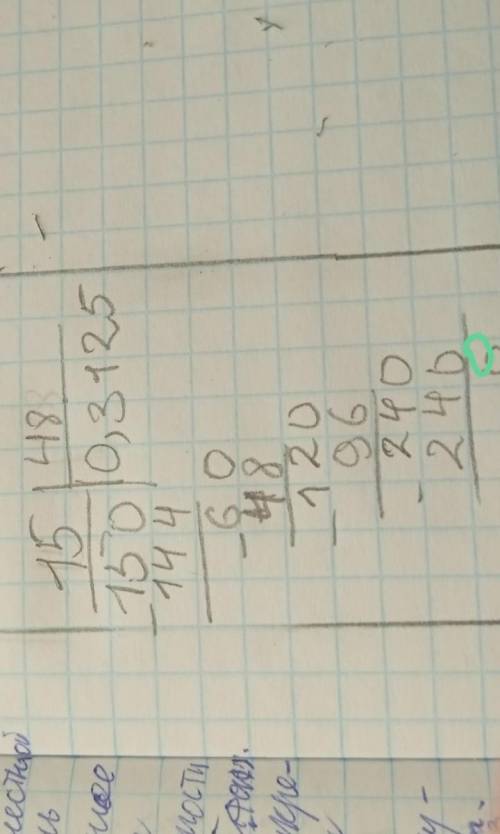 15 | 48
150 | 0,3125
- 144
- 60
48
- 120
96
- 240
240
0
ности